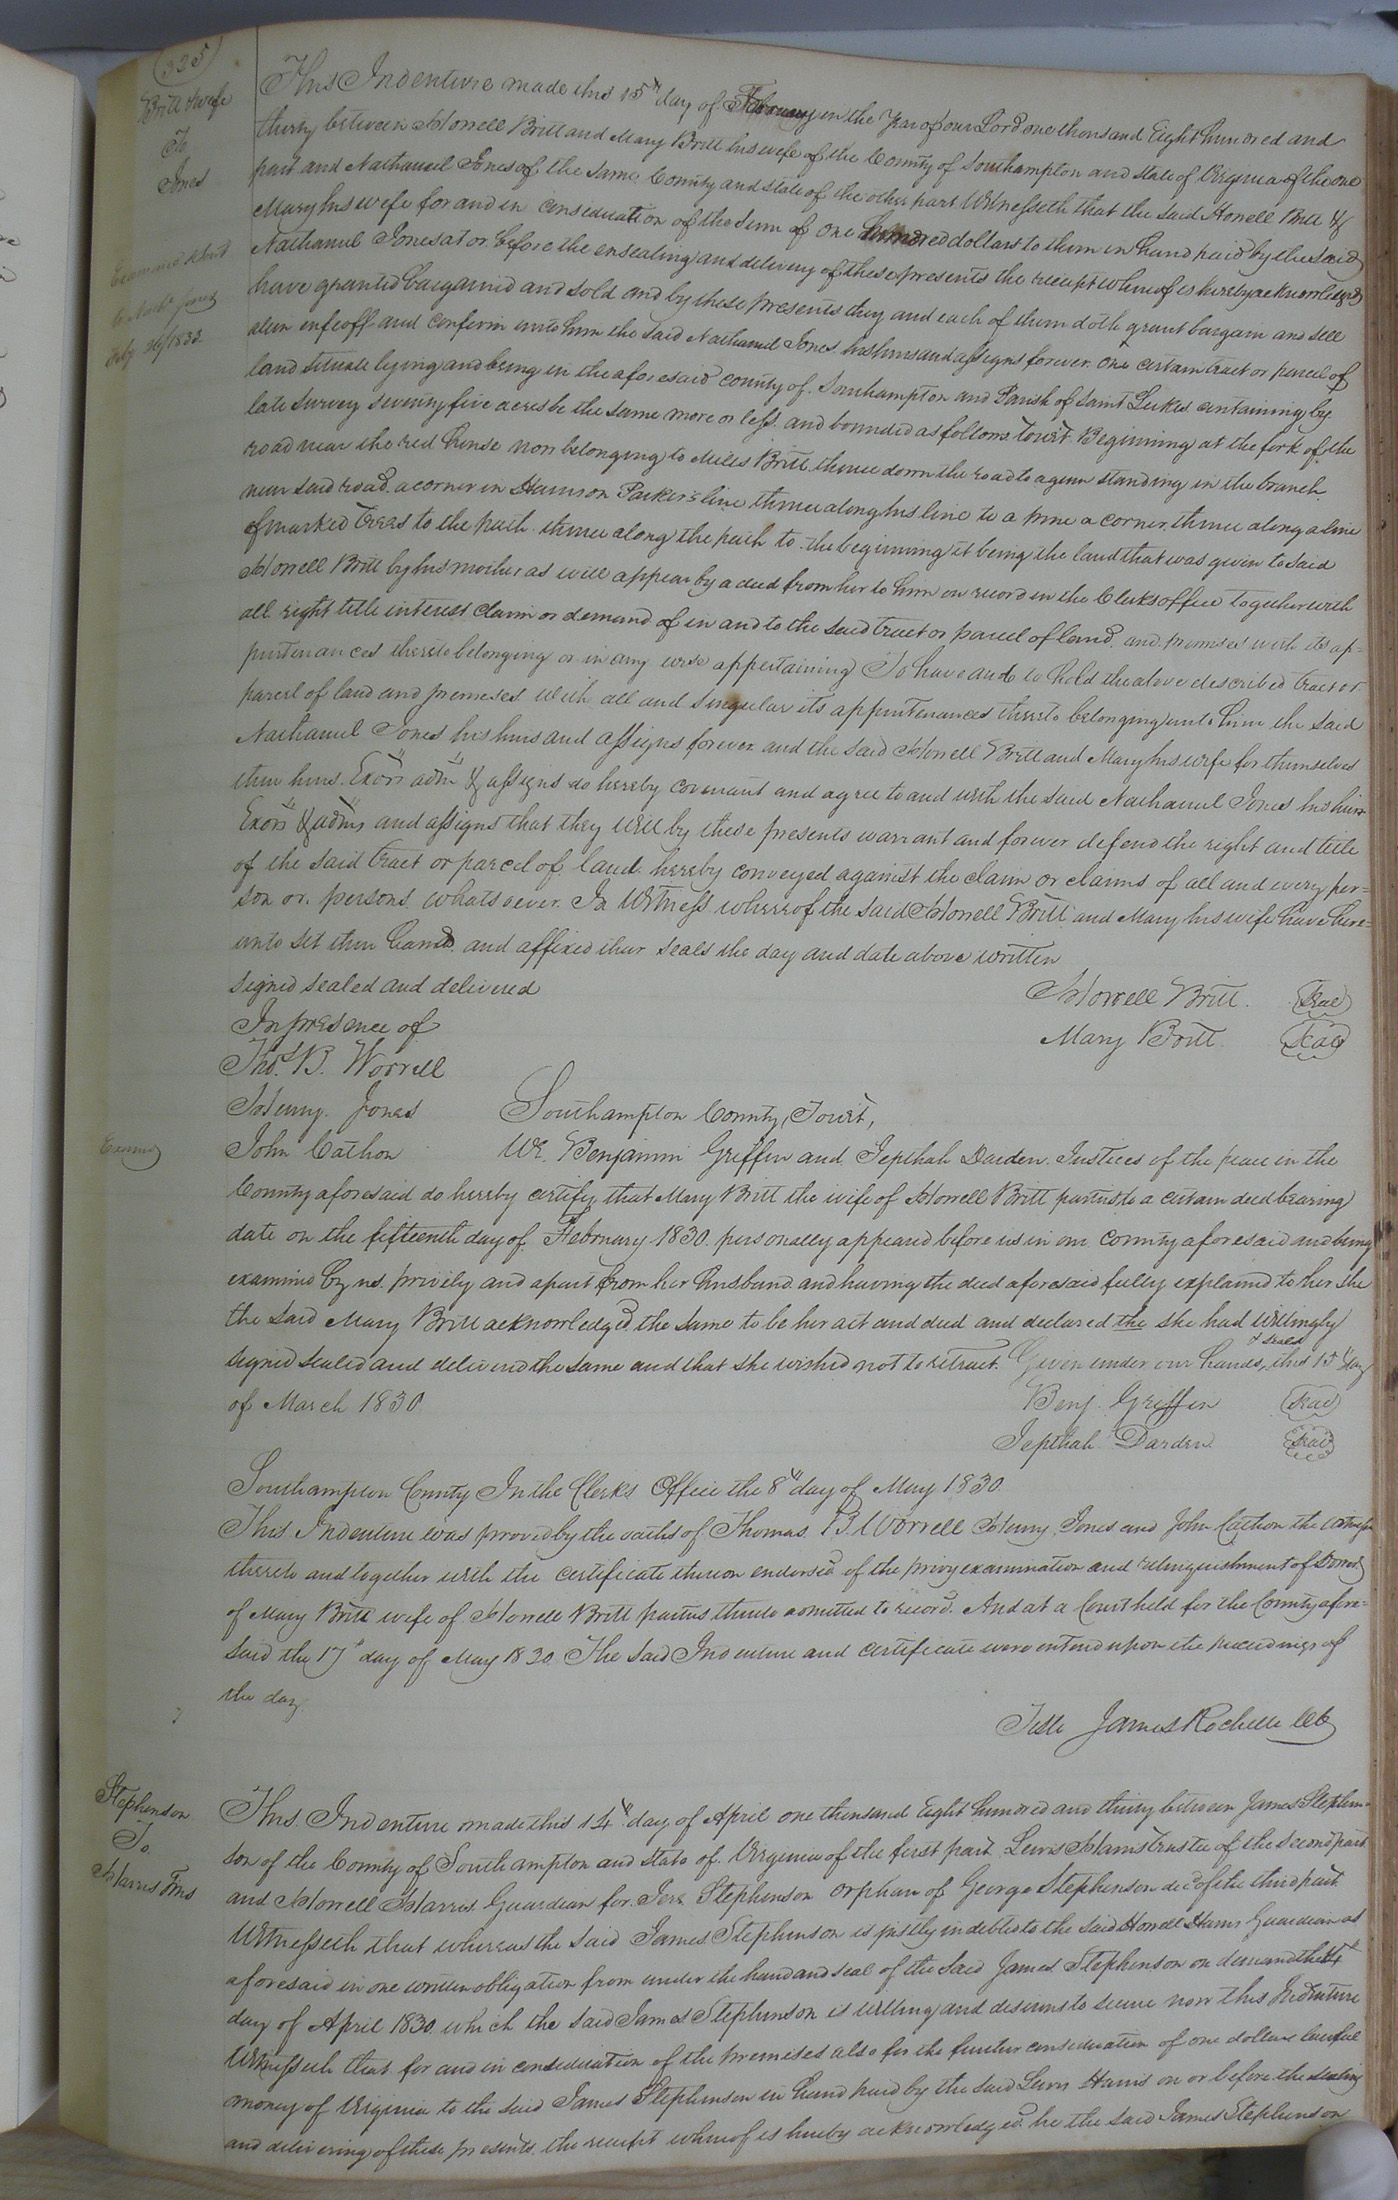 335
Britt & wife
To
Jones
Examined & deld
to Nathl Jones
Feby 26/1833
This Indenture made this 15th day of February in the Year of our Lord one thousand Eight hundred and
thirty between Howell Britt and Mary Britt his wife of the County of Southampton and state of Virginia of the one
part and Nathaniel Jones of the same County and state of the other part Witnesseth that the said Howell Britt &
Mary his wife for and in consideration of the sum of one hundred dollars to them in hand paid by the said
Nathaniel Jones at or before the ensealing and delivery of these presents the receipt whereof is hereby acknowledged
have granted bargained and sold and by these presents they and each of them doth grant bargain and sell
alien enfeoff and confirm unto him the said Nathaniel Jones his heirs and assigns forever one certain tract or parcel of
land situate lying and being in the aforesaid county of Southampton and Parish of Saint Lukes containing by
late survey seventy five acres be the same more or less and bounded as follows towit Beginning at the fork of the
road near the red house now belonging to Miles Britt thence down the road to a gum standing in the branch
near said road a corner in Harrison Parker's line thence along his line to a pine a corner thence along a line
of marked trees to the path thence along the path to the beginning it being the land that was given to said
Howell Britt by his mother as will appear by a deed from her to him on record in the Clerks office together with
all right title interest claim or demand of in and to the said tract or parcel of land and premises with its ap=
purtenances thereto belonging or in any wise appertaining To have and to hold the above described tract or
parcel of land and premises with all and singular its appurtenances thereto belonging unto him the said
Nathaniel Jones his heirs and assigns forever and the said Howell Britt and Mary his wife for themselves
their heirs Exors adms & assigns do hereby covenant and agree to and with the said Nathaniel Jones his heirs
Exors & adms and assigns that they will by these presents warrant and forever defend the right and title
of the said tract or parcel of land hereby conveyed against the claim or claims of all and every per=
son or persons whatsoever In Witness whereof the said Howell Britt and Mary his wife have here=
unto set their hands and affixed their seals the day and date above written
signed sealed and delivered
In presence of
Howell Britt Seal
Mary Britt Seal
Thos. B. Worrell
Henry Jones
John Cathon
Southampton County, Towit,
Examd
We Benjamin Griffin and Jepthah Darden Justices of the peace in the
County aforesaid do hereby certify that Mary Britt the wife of Howell Britt parties to a certain deed bearing
date on the fifteenth day of February 1830 personally appeared before us in our county aforesaid and being
examined by us privily and apart from her husband and having the deed aforesaid fully explained to her she
the said Mary Britt acknowledged the same to be her act and deed and declared the she had willingly
signed sealed and delivered the same and that she wished not to retract. Given under our hands & seals this 15th day
of March 1830
Benj. Griffin Seal
Jepthah Darden Seal
Southampton County In the Clerks Office the 8th day of May 1830
This Indenture was proved by the oaths of Thomas B. Worrell Henry Jones and John Cathon the witnesses
thereto and together with the certificate thereon endorsed of the privy examination and relinquishment of Dower
of Mary Britt wife of Howell Britt parties thereto admitted to record. And at a Court held for the County afore=
said the 17th day of May 1830 The said Indenture and certificate were entered upon the proceedings of
the day
Teste James Rochelle Clk
Stephenson
To
Harris Trus
This Indenture made this 14th day of April one thousand Eight hundred and thirty between James Stephen-
son of the County of Southampton and state of Virginia of the first part Lewis Harris trustee of the second part
and Howell Harris Guardian for Jers Stephenson orphan of George Stephenson decd of the third part
Witnesseth that whereas the said James Stephenson is justly indebted to the said Howell Harris Guardian as
aforesaid in one written obligation from under the hand and seal of the said James Stephenson on demand the 14th
day of April 1830 which the said James Stephenson is willing and desirous to secure now this Indenture
Witnesseth that for and in consideration of the premises also for the further consideration of one dollar lawful
money of Virginia to the said James Stephenson in hand paid by the said Lewis Harris on or before the sealing
and delivering of these presents the receipt whereof is hereby acknowledged he the said James Stephenson